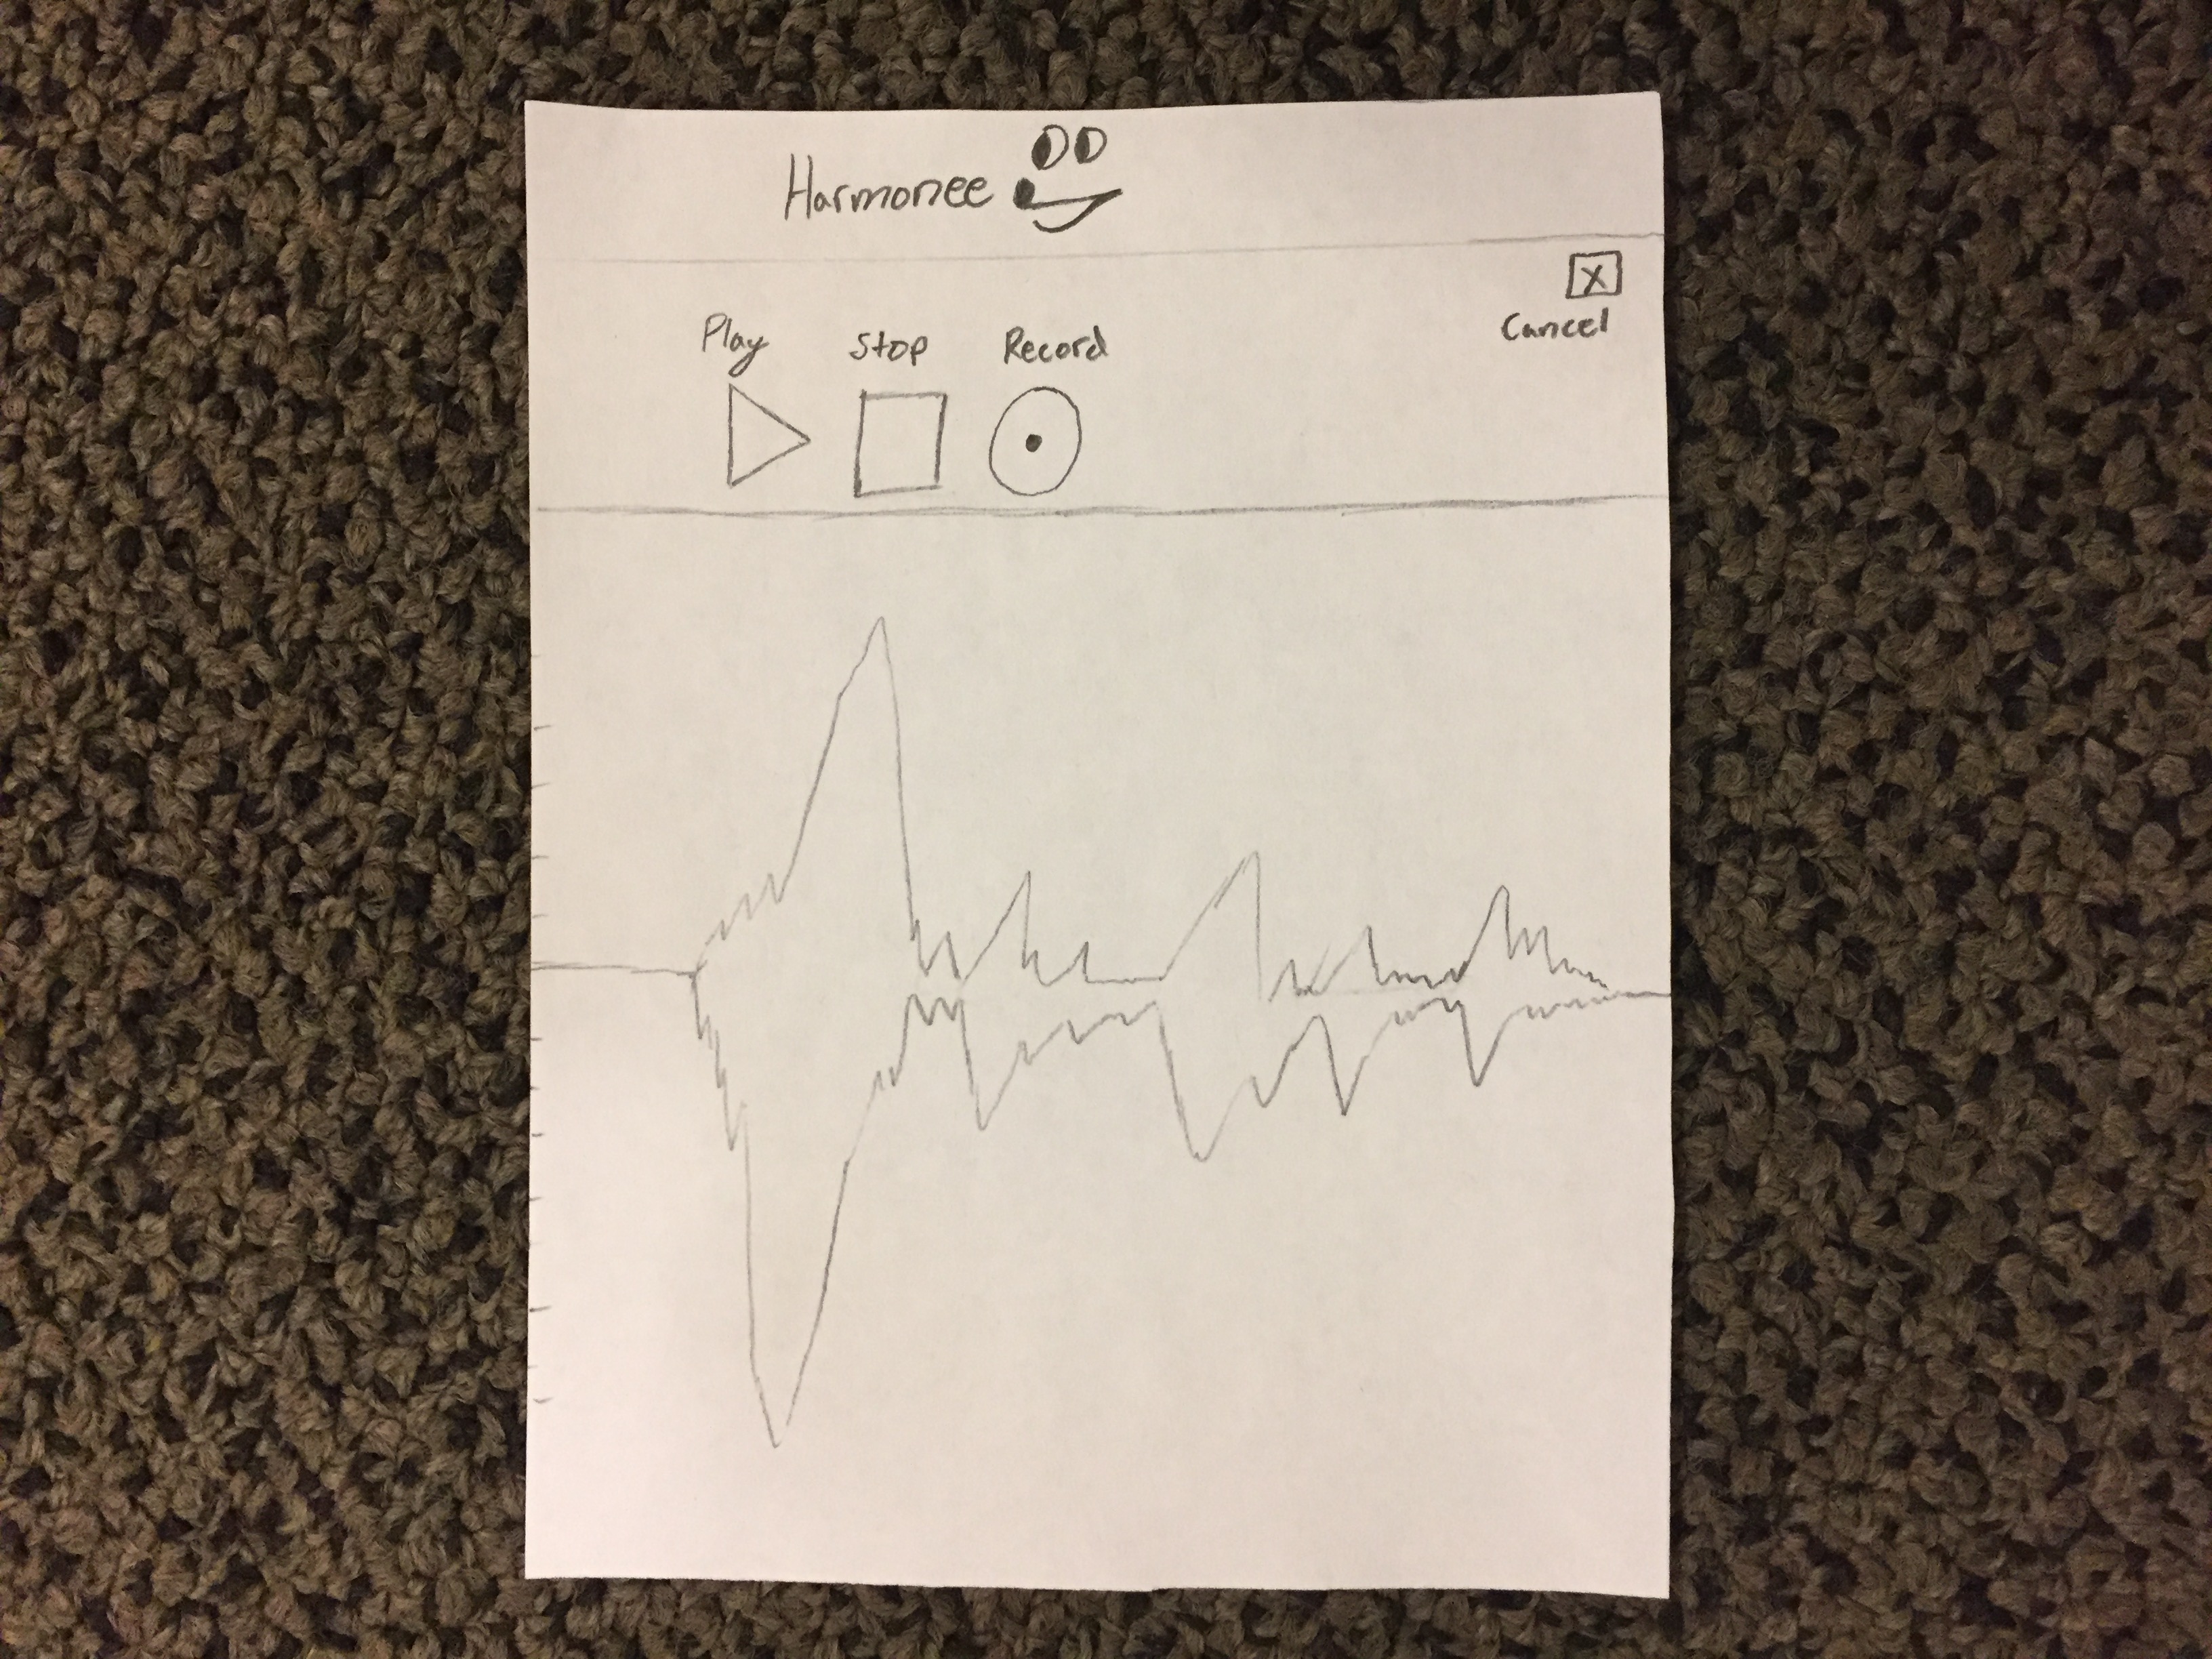 Harmonee
Play Stop Record Cancel X